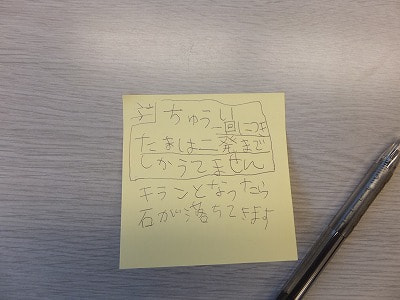 注 ちゅうい
一回につき
たまは二発まで
しかうてません
キランとなったら
石が落ちてきます